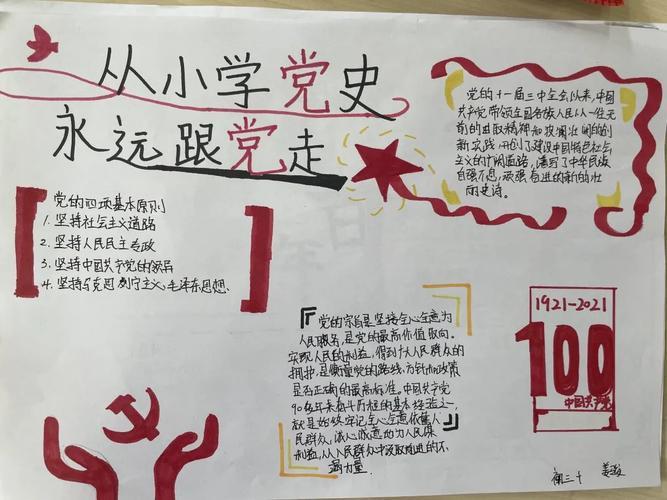 从小学党史
永远跟党走
党的十一届三中全会以来,中国
共产党带领全国各族人民以一往无
前的进取精神和波澜壮阔的创
新实践,开创了建设中国特色社会
主义的广阔道路,谱写了中华民族
自强不息,顽强奋进的新的壮
丽史诗。
党的四项基本原则
1. 坚持社会主义道路
2. 坚持人民民主专政
3. 坚持中国共产党的领导
4. 坚持马克思列宁主义,毛泽东思想.
党的宗旨是坚持全心全意为
人民服务,是党的最高价值取向。
实现人民的利益,得到广大人民群众的
拥护,是衡量党的路线,方针和政策
是否正确的最高标准。中国共产党
90多年来奋斗历程的基本经验之一,
就是始终牢记全心全意依靠人
民群众,诚心诚意地为人民谋
利益,从人民群众中汲取前进的不
竭力量.
1921-2021
100
中国共产党
初三十